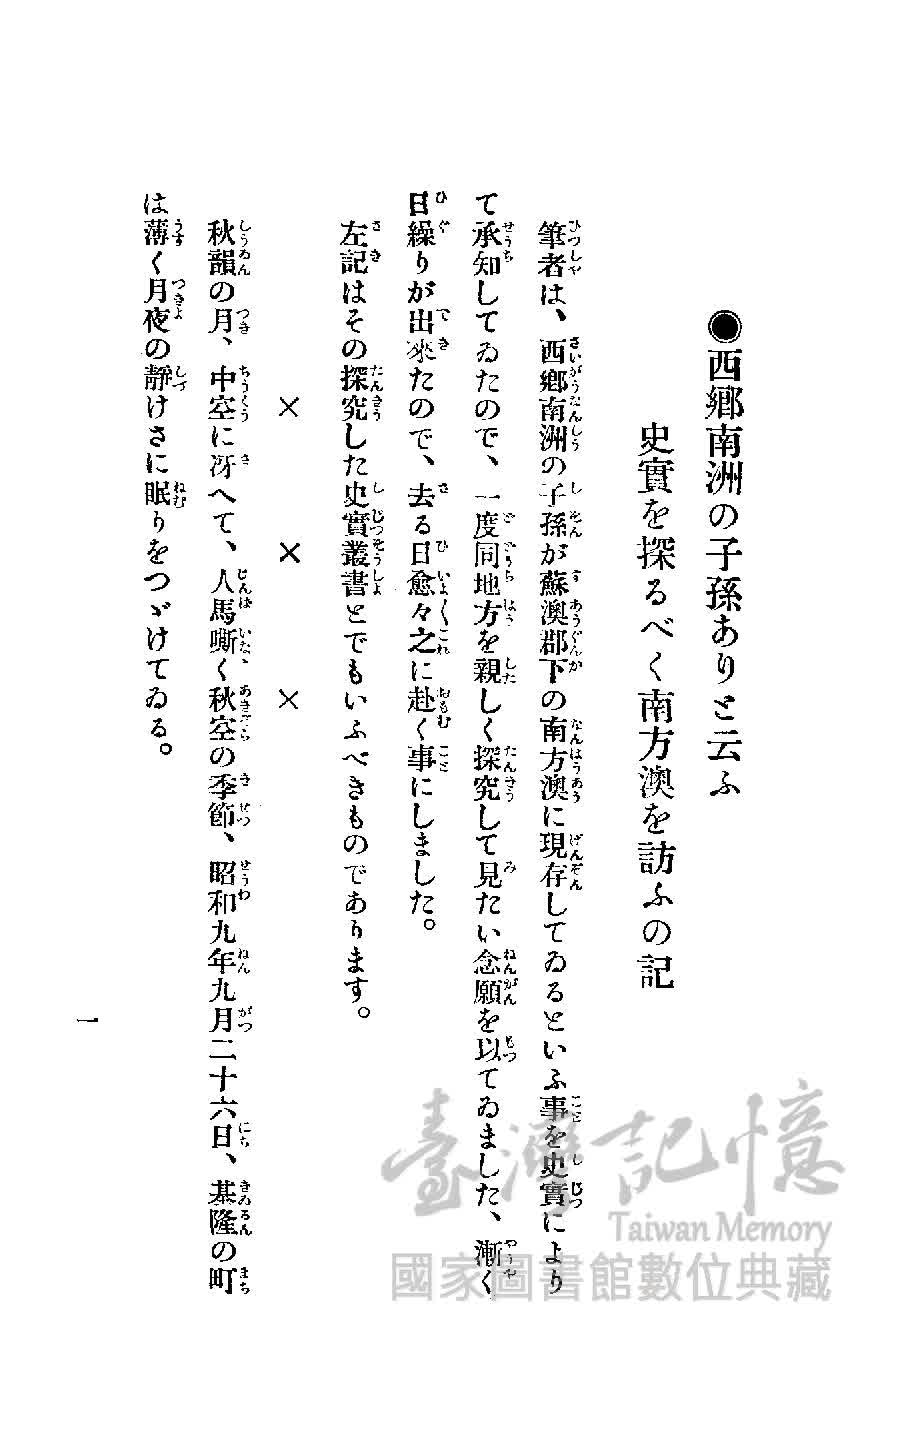 ◉西鄕南洲の子孫ありと云ふ
史實を探るべく南方澳を訪ふの記
筆者は、西鄕南洲の子孫が蘇澳郡下の南方澳に現存してゐるといふ事を史實により
て承知してゐたので、一度同地方を親しく探究して見たい念願を以てゐました、漸く
日繰りが出來たので、去る日愈々之に赴く事にしました。
左記はその探究した史實叢書とでもいふべきものであります。
×××
秋韻の月、中空に冴へて、人馬嘶く秋空の季節、昭和九年九月二十六日、基隆の町
は薄く月夜の靜けさに眠りをつゞけてゐる。
一
臺灣記憶
Taiwan Memory
國家圖書館數位典藏